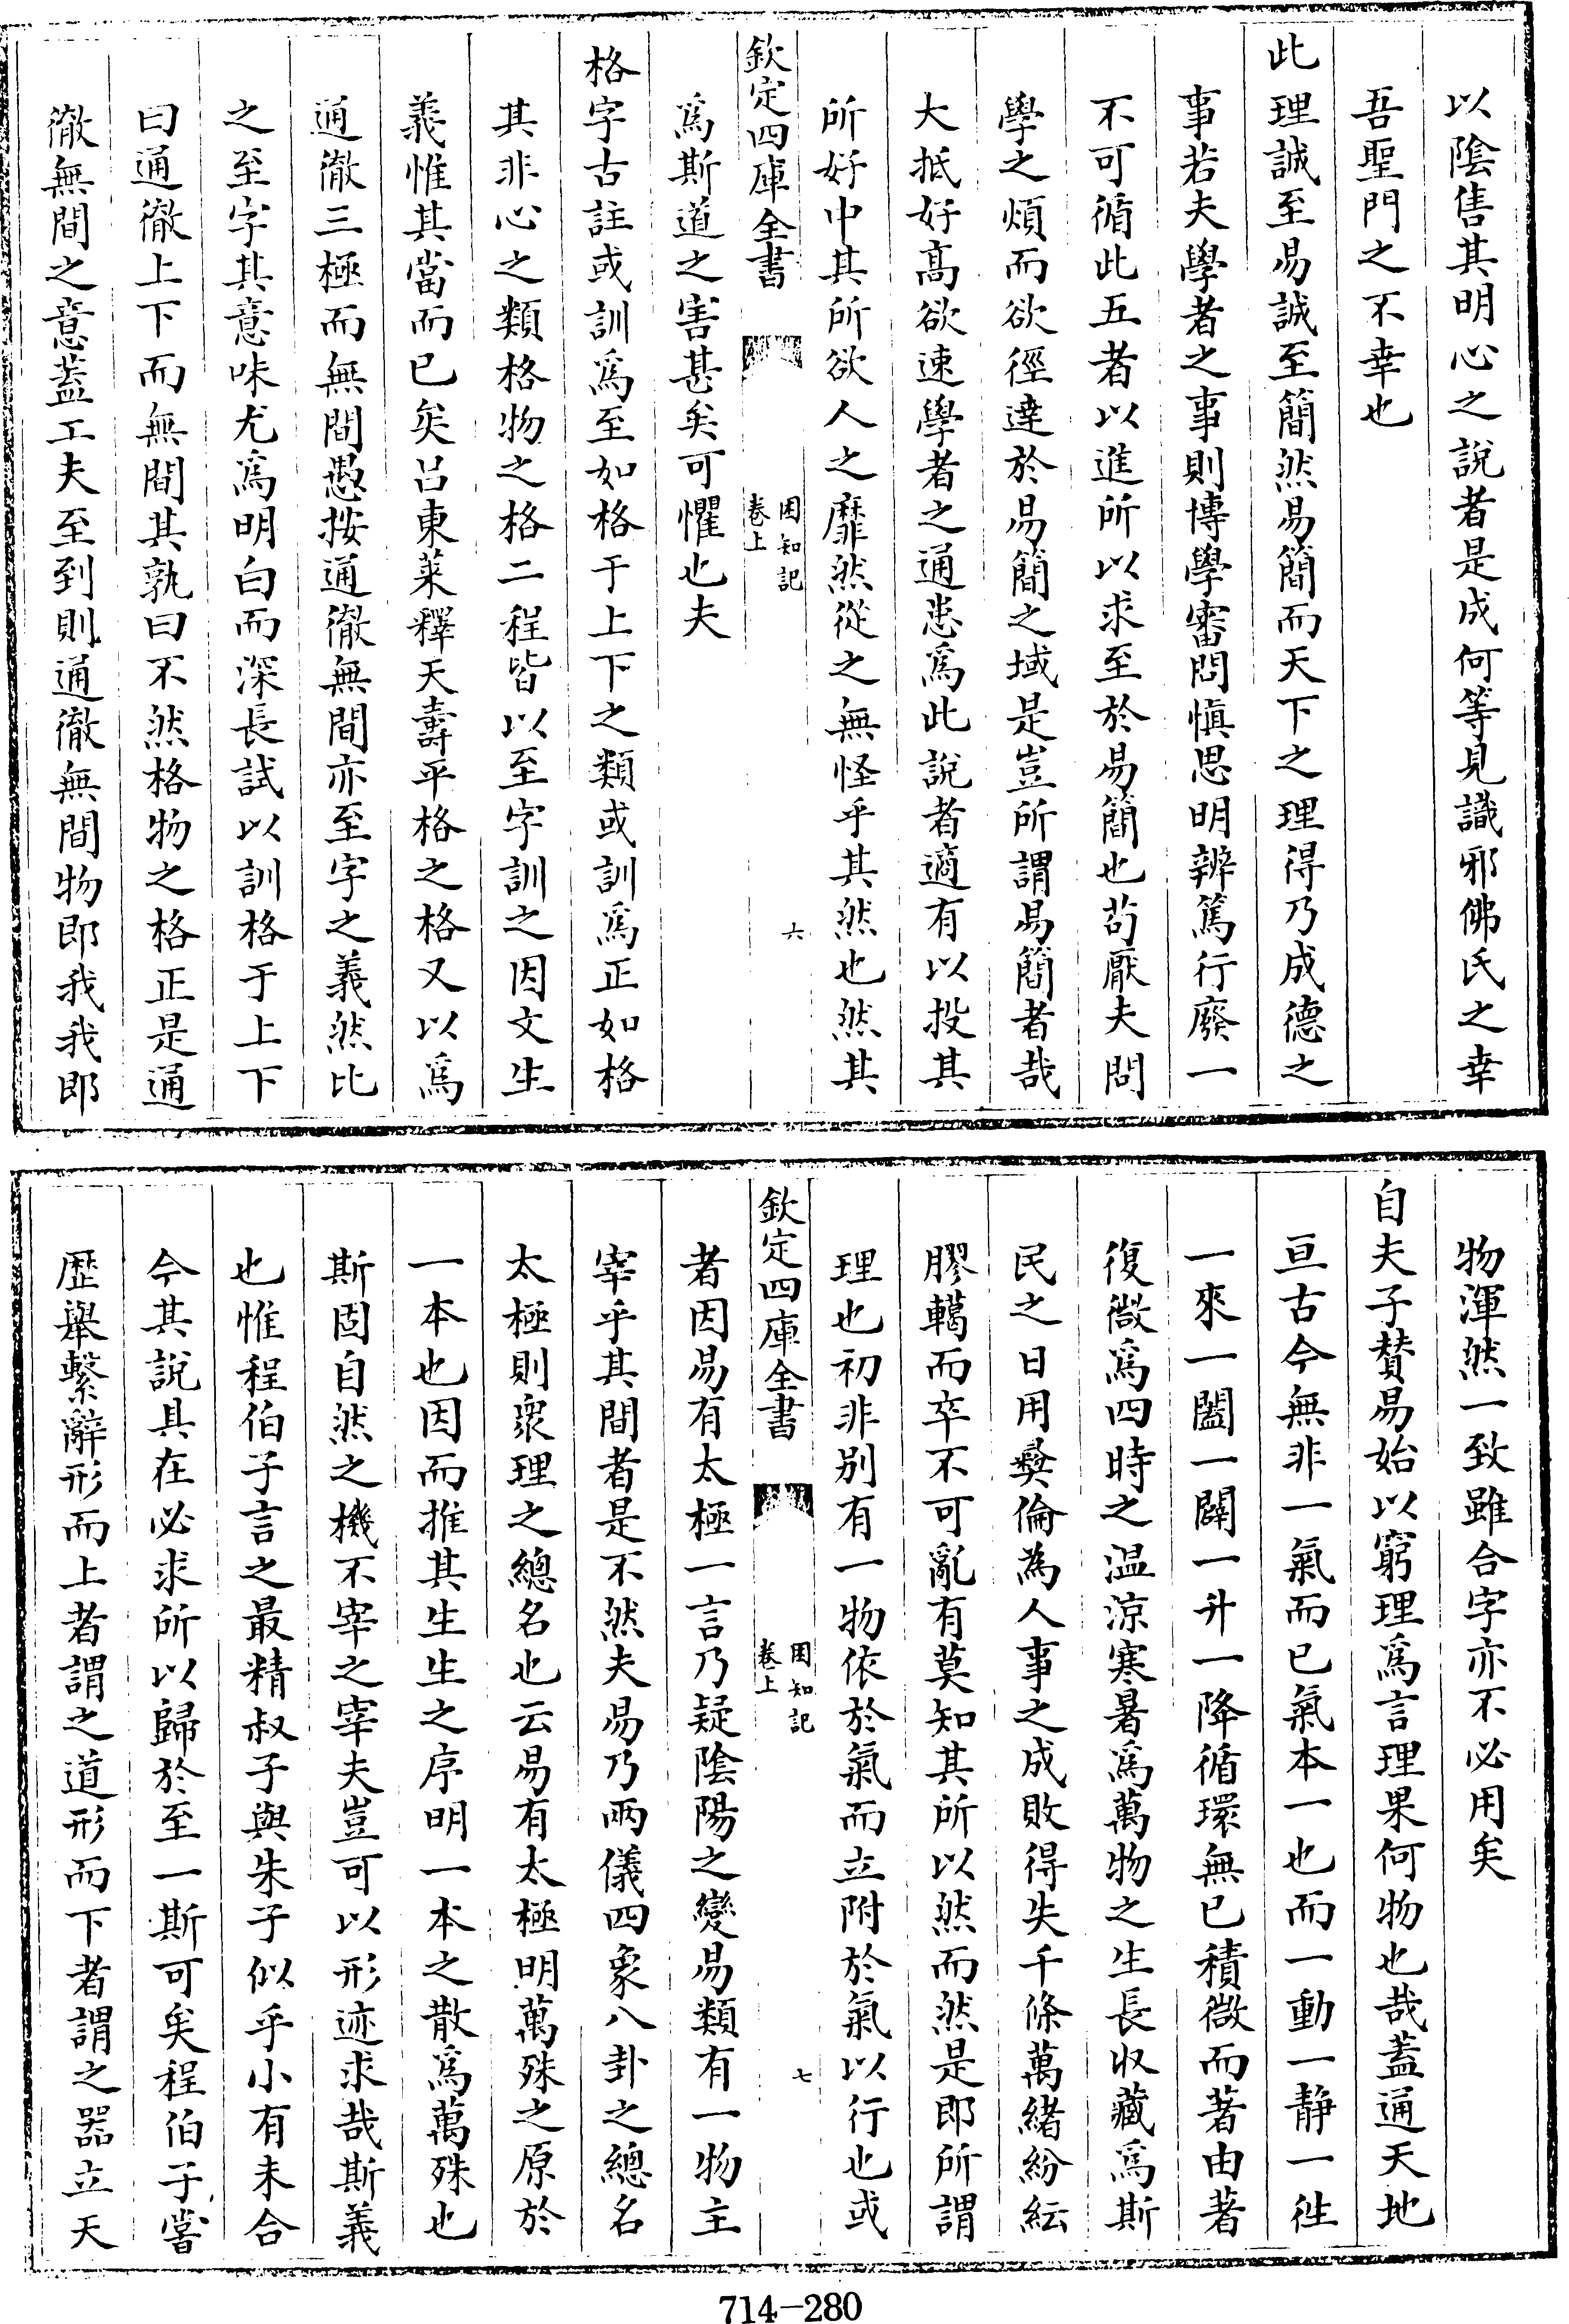 以陰售其明心之說者是成何等見識邪佛氏之幸
吾聖門之不幸也
此理誠至易誠至簡然易簡而天下之理得乃成德之
事若夫學者之事則博學審問愼思明辨篤行廢一
不可循此五者以進所以求至於易簡也茍厭夫問
學之煩而欲徑逹於易簡之域是豈所謂易簡者哉
大抵好髙欲速學者之通患爲此說者適有以投其
所好中其所欲人之靡然從之無怪乎其然也然其
欽定四庫全書
困知記
卷上
六
爲斯道之害甚矣可懼也夫
格字古註或訓爲至如格于上下之類或訓爲正如格
其非心之類格物之格二程皆以至字訓之因文生
義惟其當而已矣吕東萊釋天壽平格之格又以爲
通徹三極而無間愚按通徹無間亦至字之義然比
之至字其意味尤爲明白而深長試以訓格于上下
曰通徹上下而無間其孰曰不然格物之格正是通
徹無間之意葢工夫至到則通徹無間物即我我即
物渾然一致雖合字亦不必用矣
自夫子賛易始以窮理爲言理果何物也哉葢通天地
亘古今無非一氣而已氣本一也而一動一静一徃
一來一闔一闢一升一降循環無已積微而著由著
復微爲四時之温涼寒暑爲萬物之生長收藏爲斯
民之日用彜倫為人事之成敗得失千條萬緒紛紜
膠轕而卒不可亂有莫知其所以然而然是即所謂
理也初非别有一物依於氣而立附於氣以行也或
欽定四庫全書
困知記
卷上
七
者因易有太極一言乃疑陰陽之變易類有一物主
宰乎其間者是不然夫易乃兩儀四象八卦之總名
太極則衆理之總名也云易有太極明萬殊之原於
一本也因而推其生生之序明一本之散爲萬殊也
斯固自然之機不宰之宰夫豈可以形迹求哉斯義
也惟程伯子言之最精叔子與朱子似乎小有未合
今其說具在必求所以歸於至一斯可矣程伯子嘗
歴舉繫辭形而上者謂之道形而下者謂之器立天
714-280